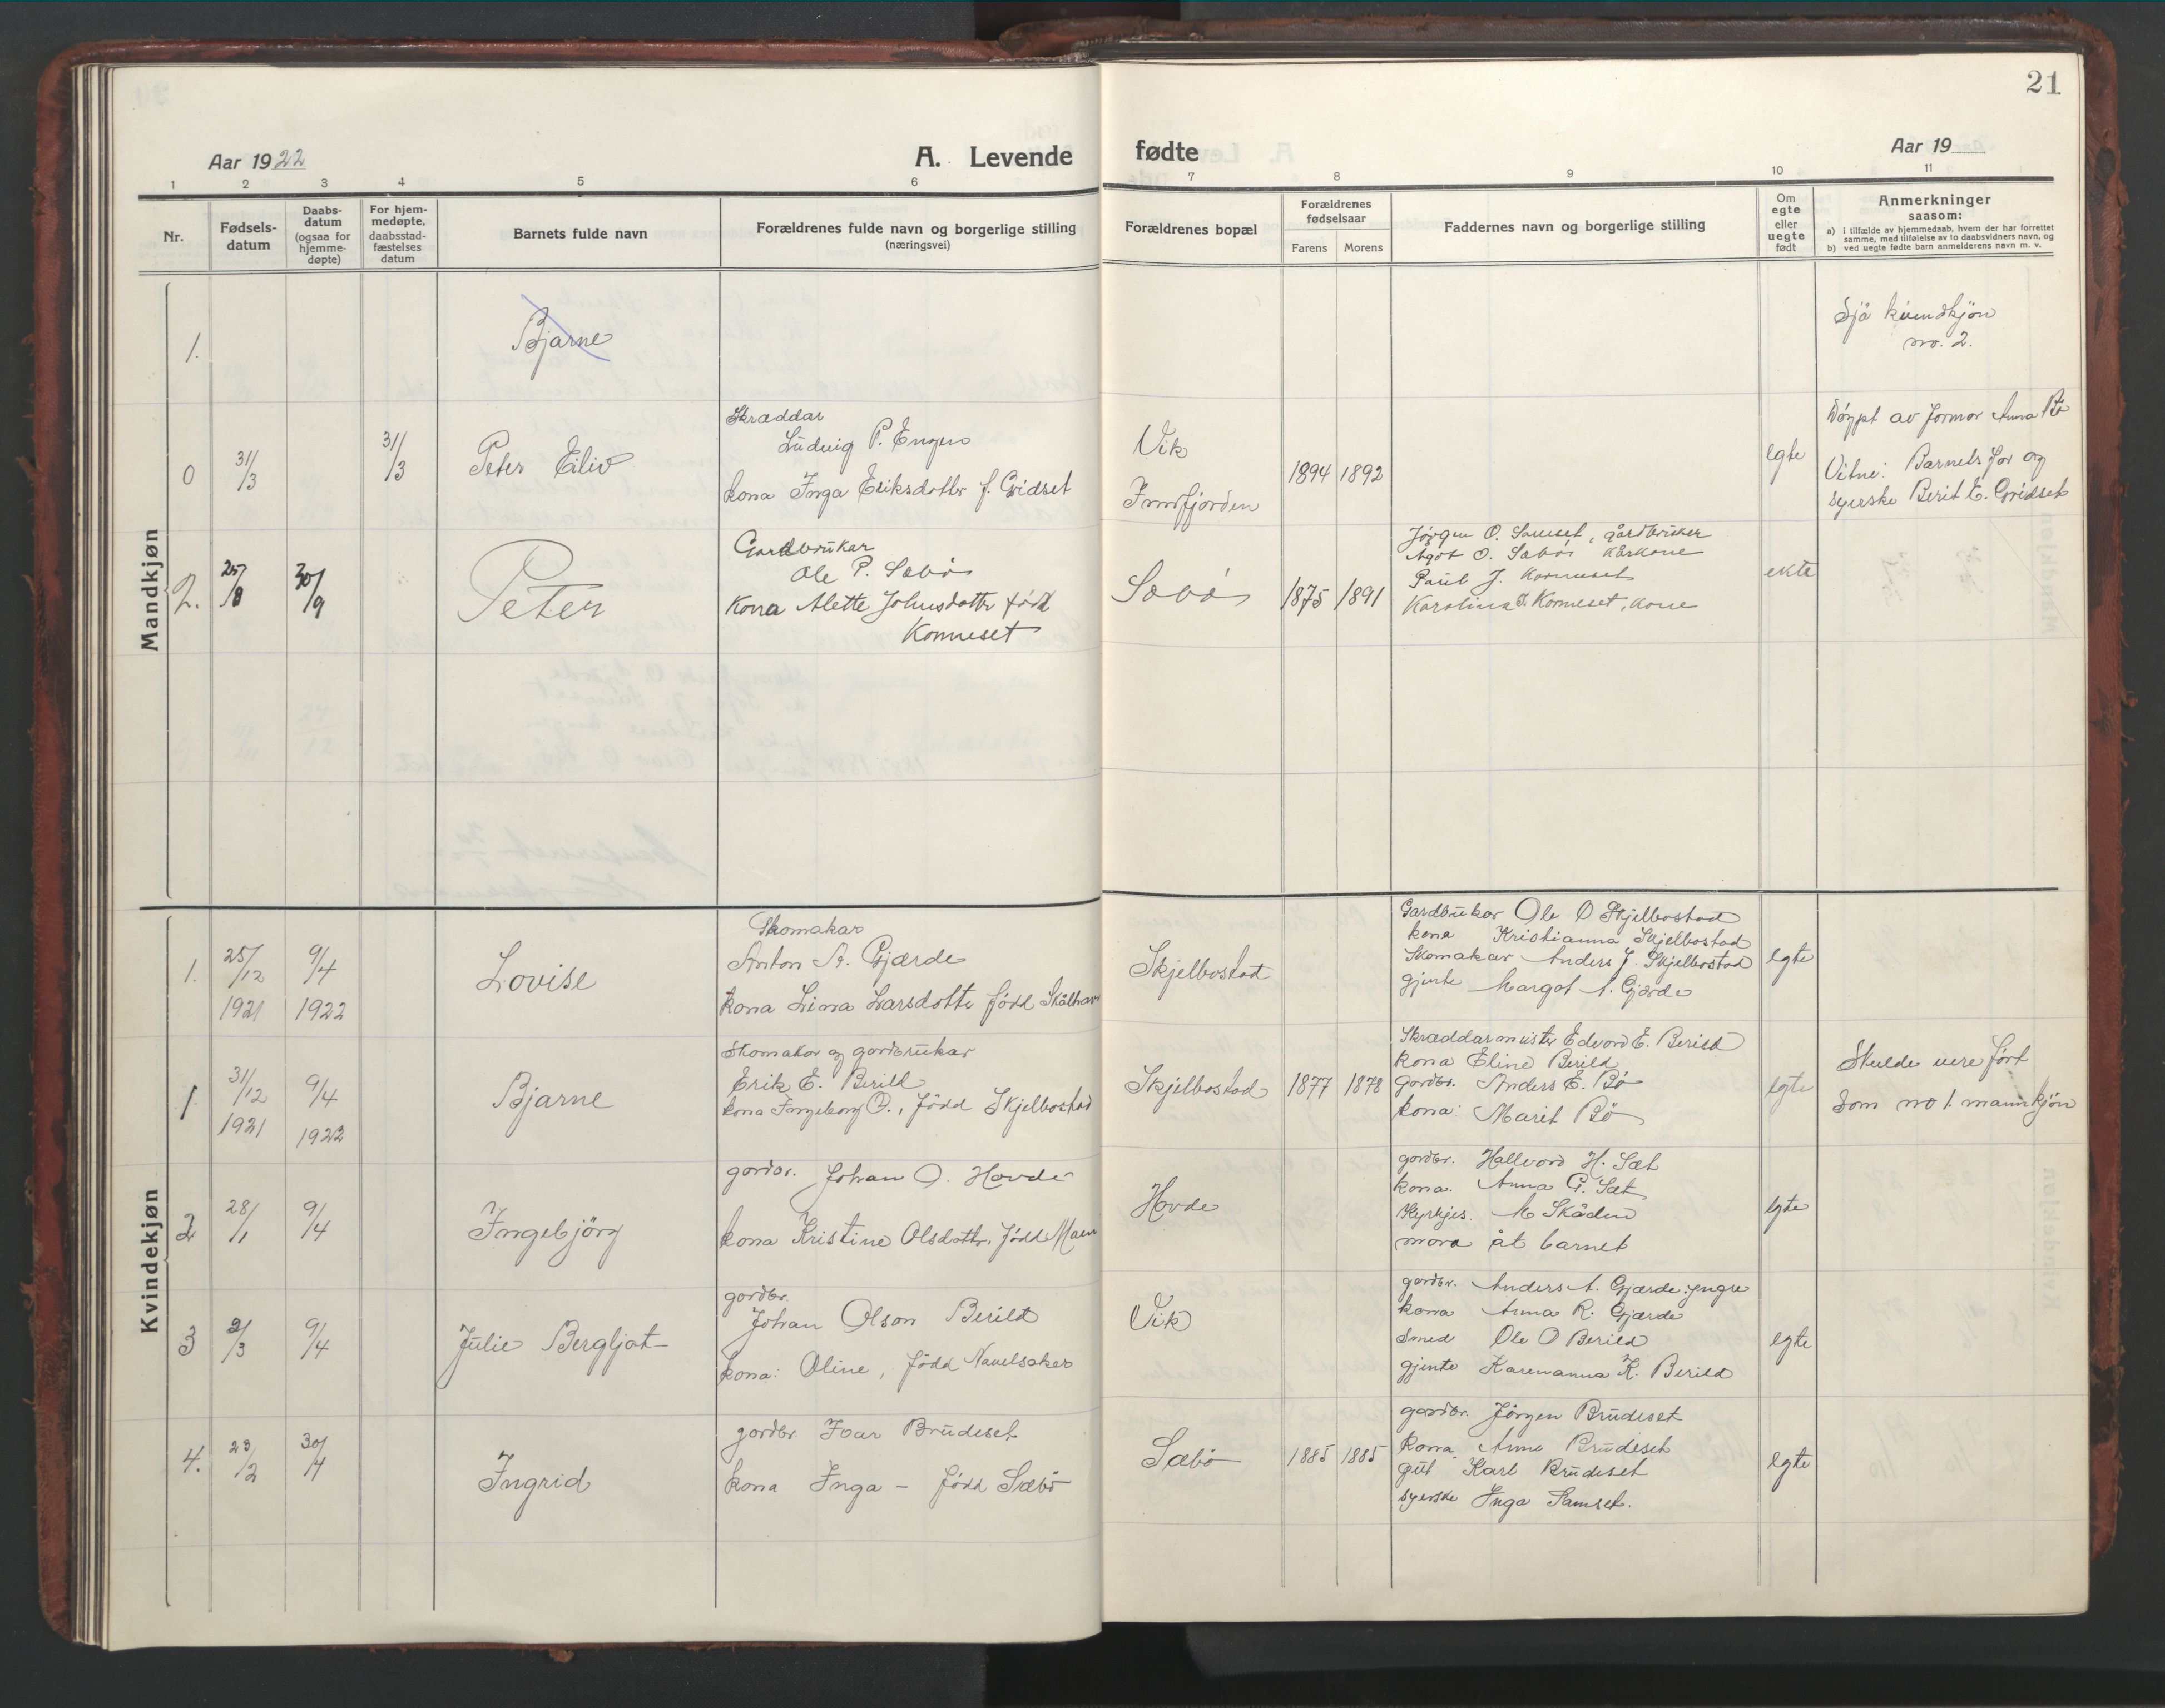 21
Aar 1922
A. Levende fødte
Aar 19
1 2 3 4 5 6 7 8 9 10 11
Nr.
Fødsels-
datum
Daabs-
datum
(ogsaa for
hjemme-
døpte)
For hjem-
medøpte,
daabsstad-
fæstelses
datum
Barnets fulde navn
Forældrenes fulde navn og borgerlige stilling
(næringsvei)
Forældrenes bopæl
Forældrenes
fødselsaar
Farens Morens
Faddernes navn og borgerlige stilling
Om
egte
eller
uegte
født
Anmerkninger
saasom:
a) i tilfælde av hjemmedaab, hvem der har forrettet
samme, med tilføielse av to daabsvidners navn, og
b) ved uegte fødte barn anmelderens navn m. v.
Mandkjøn
1.
Bjarne
Sjå kvindkjøn
no. 2.
0
31/3
31/3
Peter Eiliv
Skræddar
Ludvig P. Engen
kona Inga Eriksdotter f. Gridset
Vik
Innfjorden
1894 1892
egte
Døypt av formor Anna Bø
Vitne: Barnets for og
syerske Berit E. Gridset
2.
25/8
30/9
Peter
Gardbrukar
Ole P. Sæbø
Kona Alette Johnsdottr fødd
Konneset
Sæbø
1875 1891
Jørgen O. Samset, gårdbruker
Agot O. Sæbø kårkone
Paul J. Konneset
Karolina J. Konneset, kone
ekte
Kvindekjøn
1.
25/12
1921
9/4
1922
Lovise
Skomakar
Anton A. Gjærde
kona Lina Larsdotter fødd
Skjelbostad
Gardbrukar Ole O Skjelbostad
kona Kristianna Skjelbostad
Skomakar Anders J. Skjelbostad
gjente Margot A. Gjærde
egte
1
31/12
1921
9/4
1922
Bjarne
Skomakar og gardbrukar
Erik E. Berild
kona Ingeborg O., fødd Skjelbostad
Skjelbostad
1877 1878
Skræddarmeister Edvard E. Berild
kona Eline Berild
gardbr. Anders E. Bø
kona: Marit Bø
egte
Skulde vere ført
som no 1. mannkjøn
2
28/1
9/4
Ingebjörg
gardbr. Johan O. Hovde
kona Kristine Olsdottr. fødd
Hovde
gardbr. Hallvard H. Sæt
kona. Anna G. Sæt
Kyrkjes. M Skåden
mora åt barnet
egte
3
2/3
9/4
Julie Bergljot
gardbr.
Johan Olson Berild
kona: Oline, fødd Navelsaker
Vik
gardbr. Anders A. Gjærde yngre
kona Anna R. Gjærde
Smed Ole O Berild
gjente Karenanna K. Berild
egte
4.
23/2
30/4
Ingrid
gardbr. Ivar Brudeset
kona Inga - fødd Sæbø
Sæbø
1885 1885
gardbr. Jörgen Brudeset
kona Anne Brudeset
gut Karl Brudeset
syerske Inga Samset.
egte